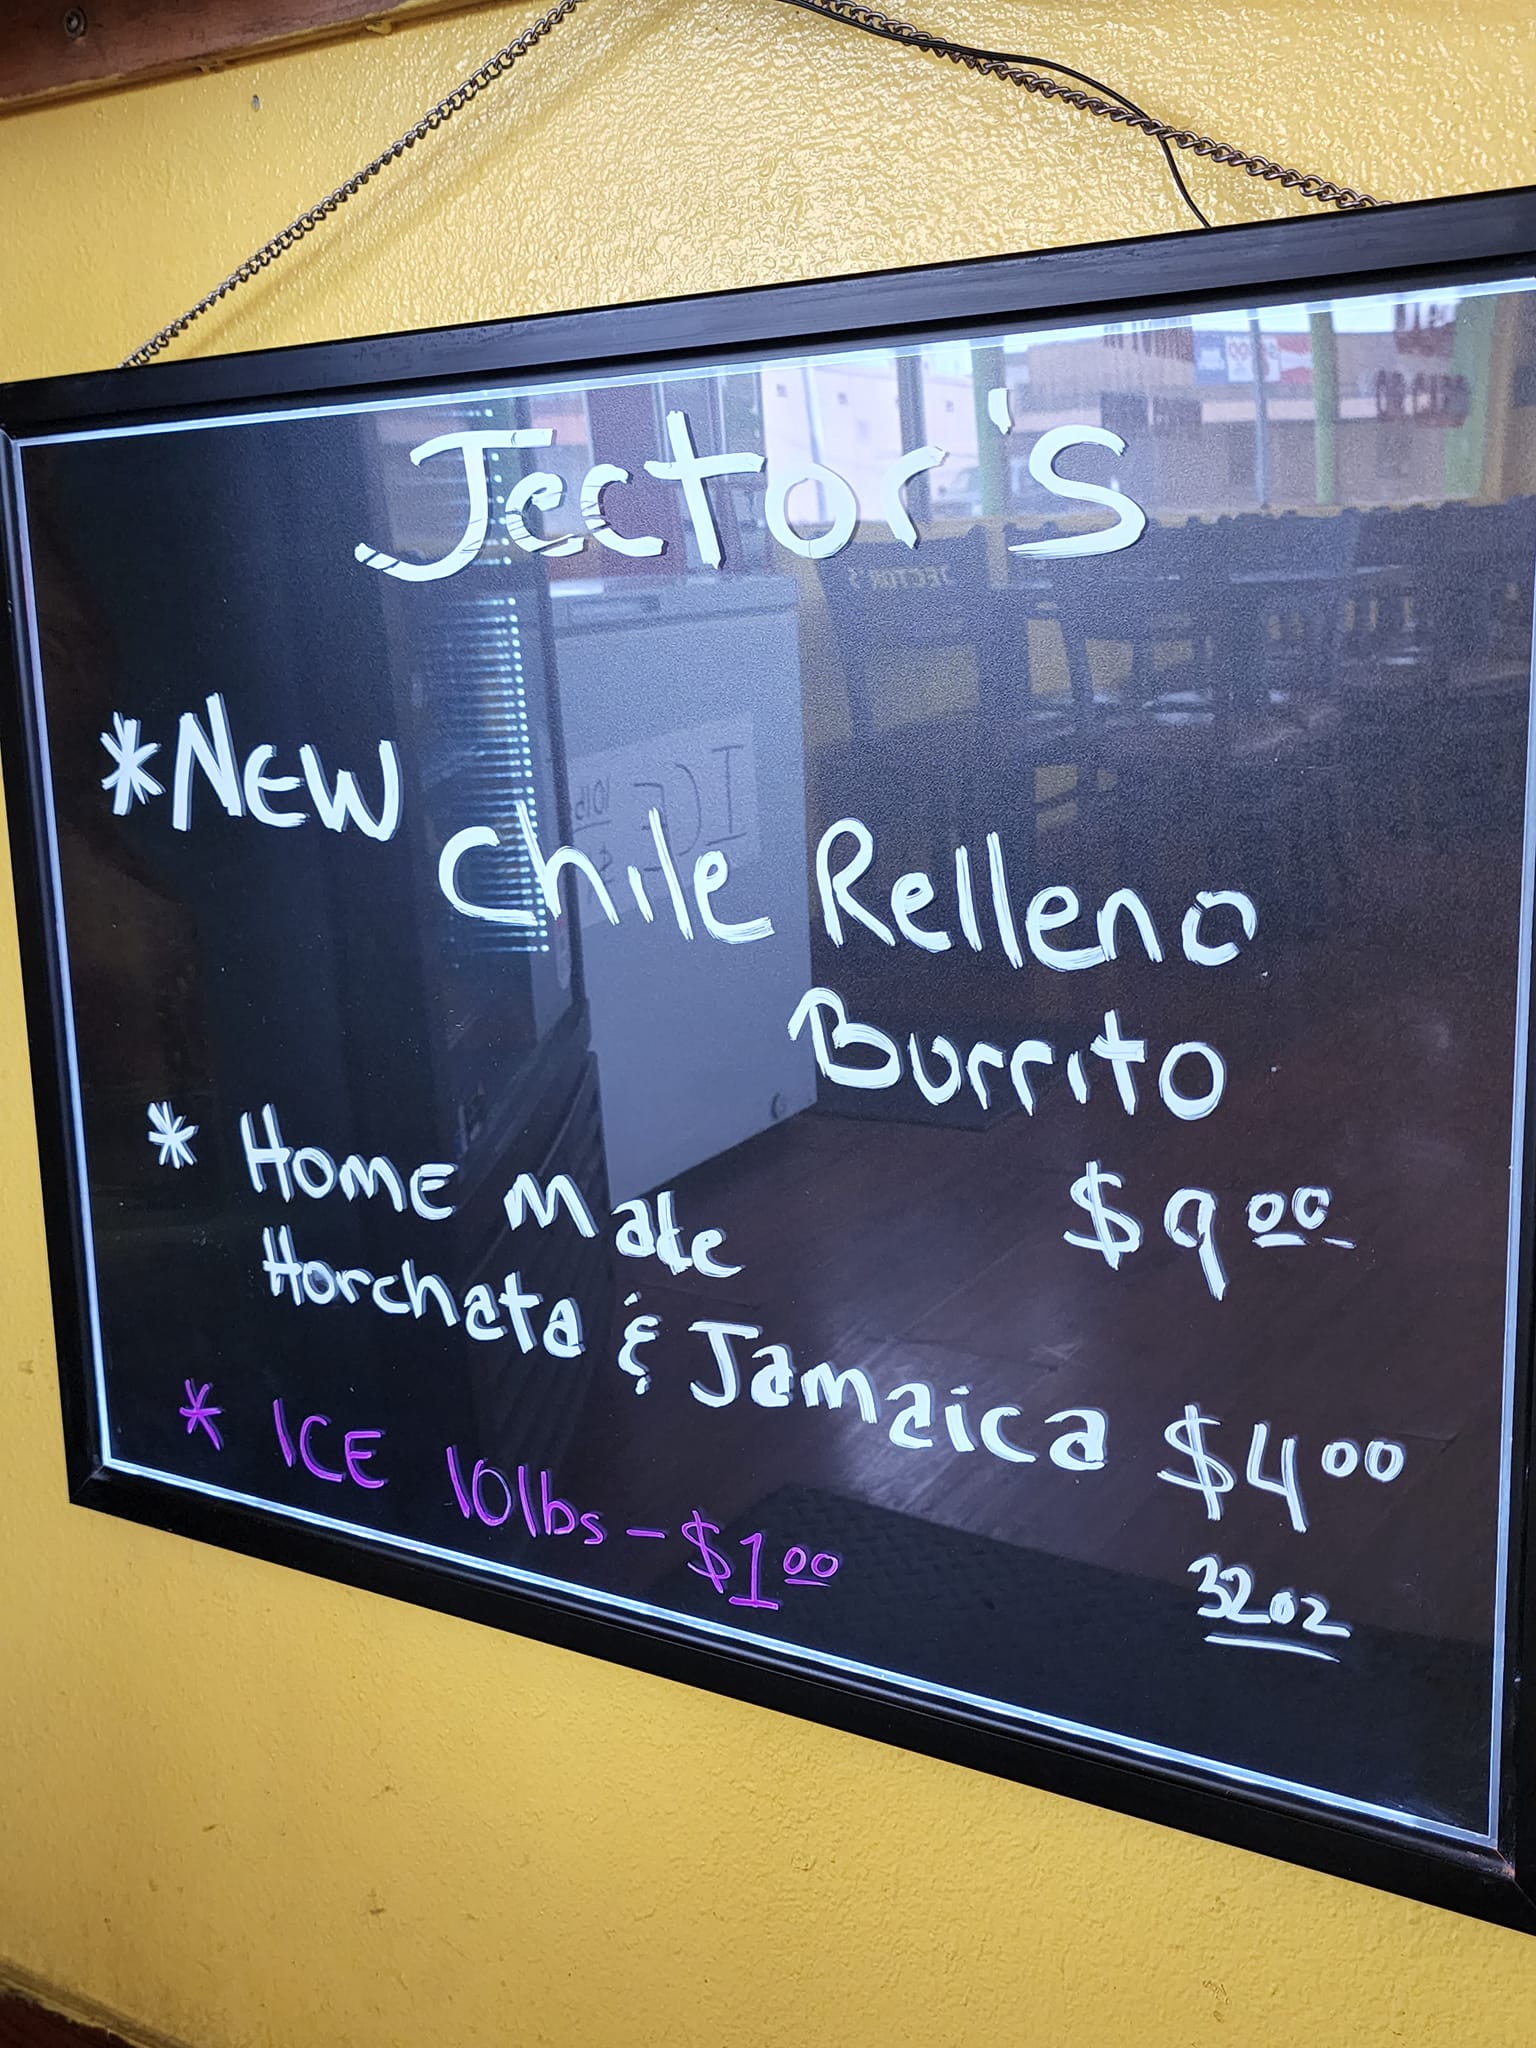 Jector's
*NEW
Chile Relleno
Burrito
$9.00
* HOME Made
Horchata & Jamaica $4.00
32oz
* ICE 10lbs - $1.00